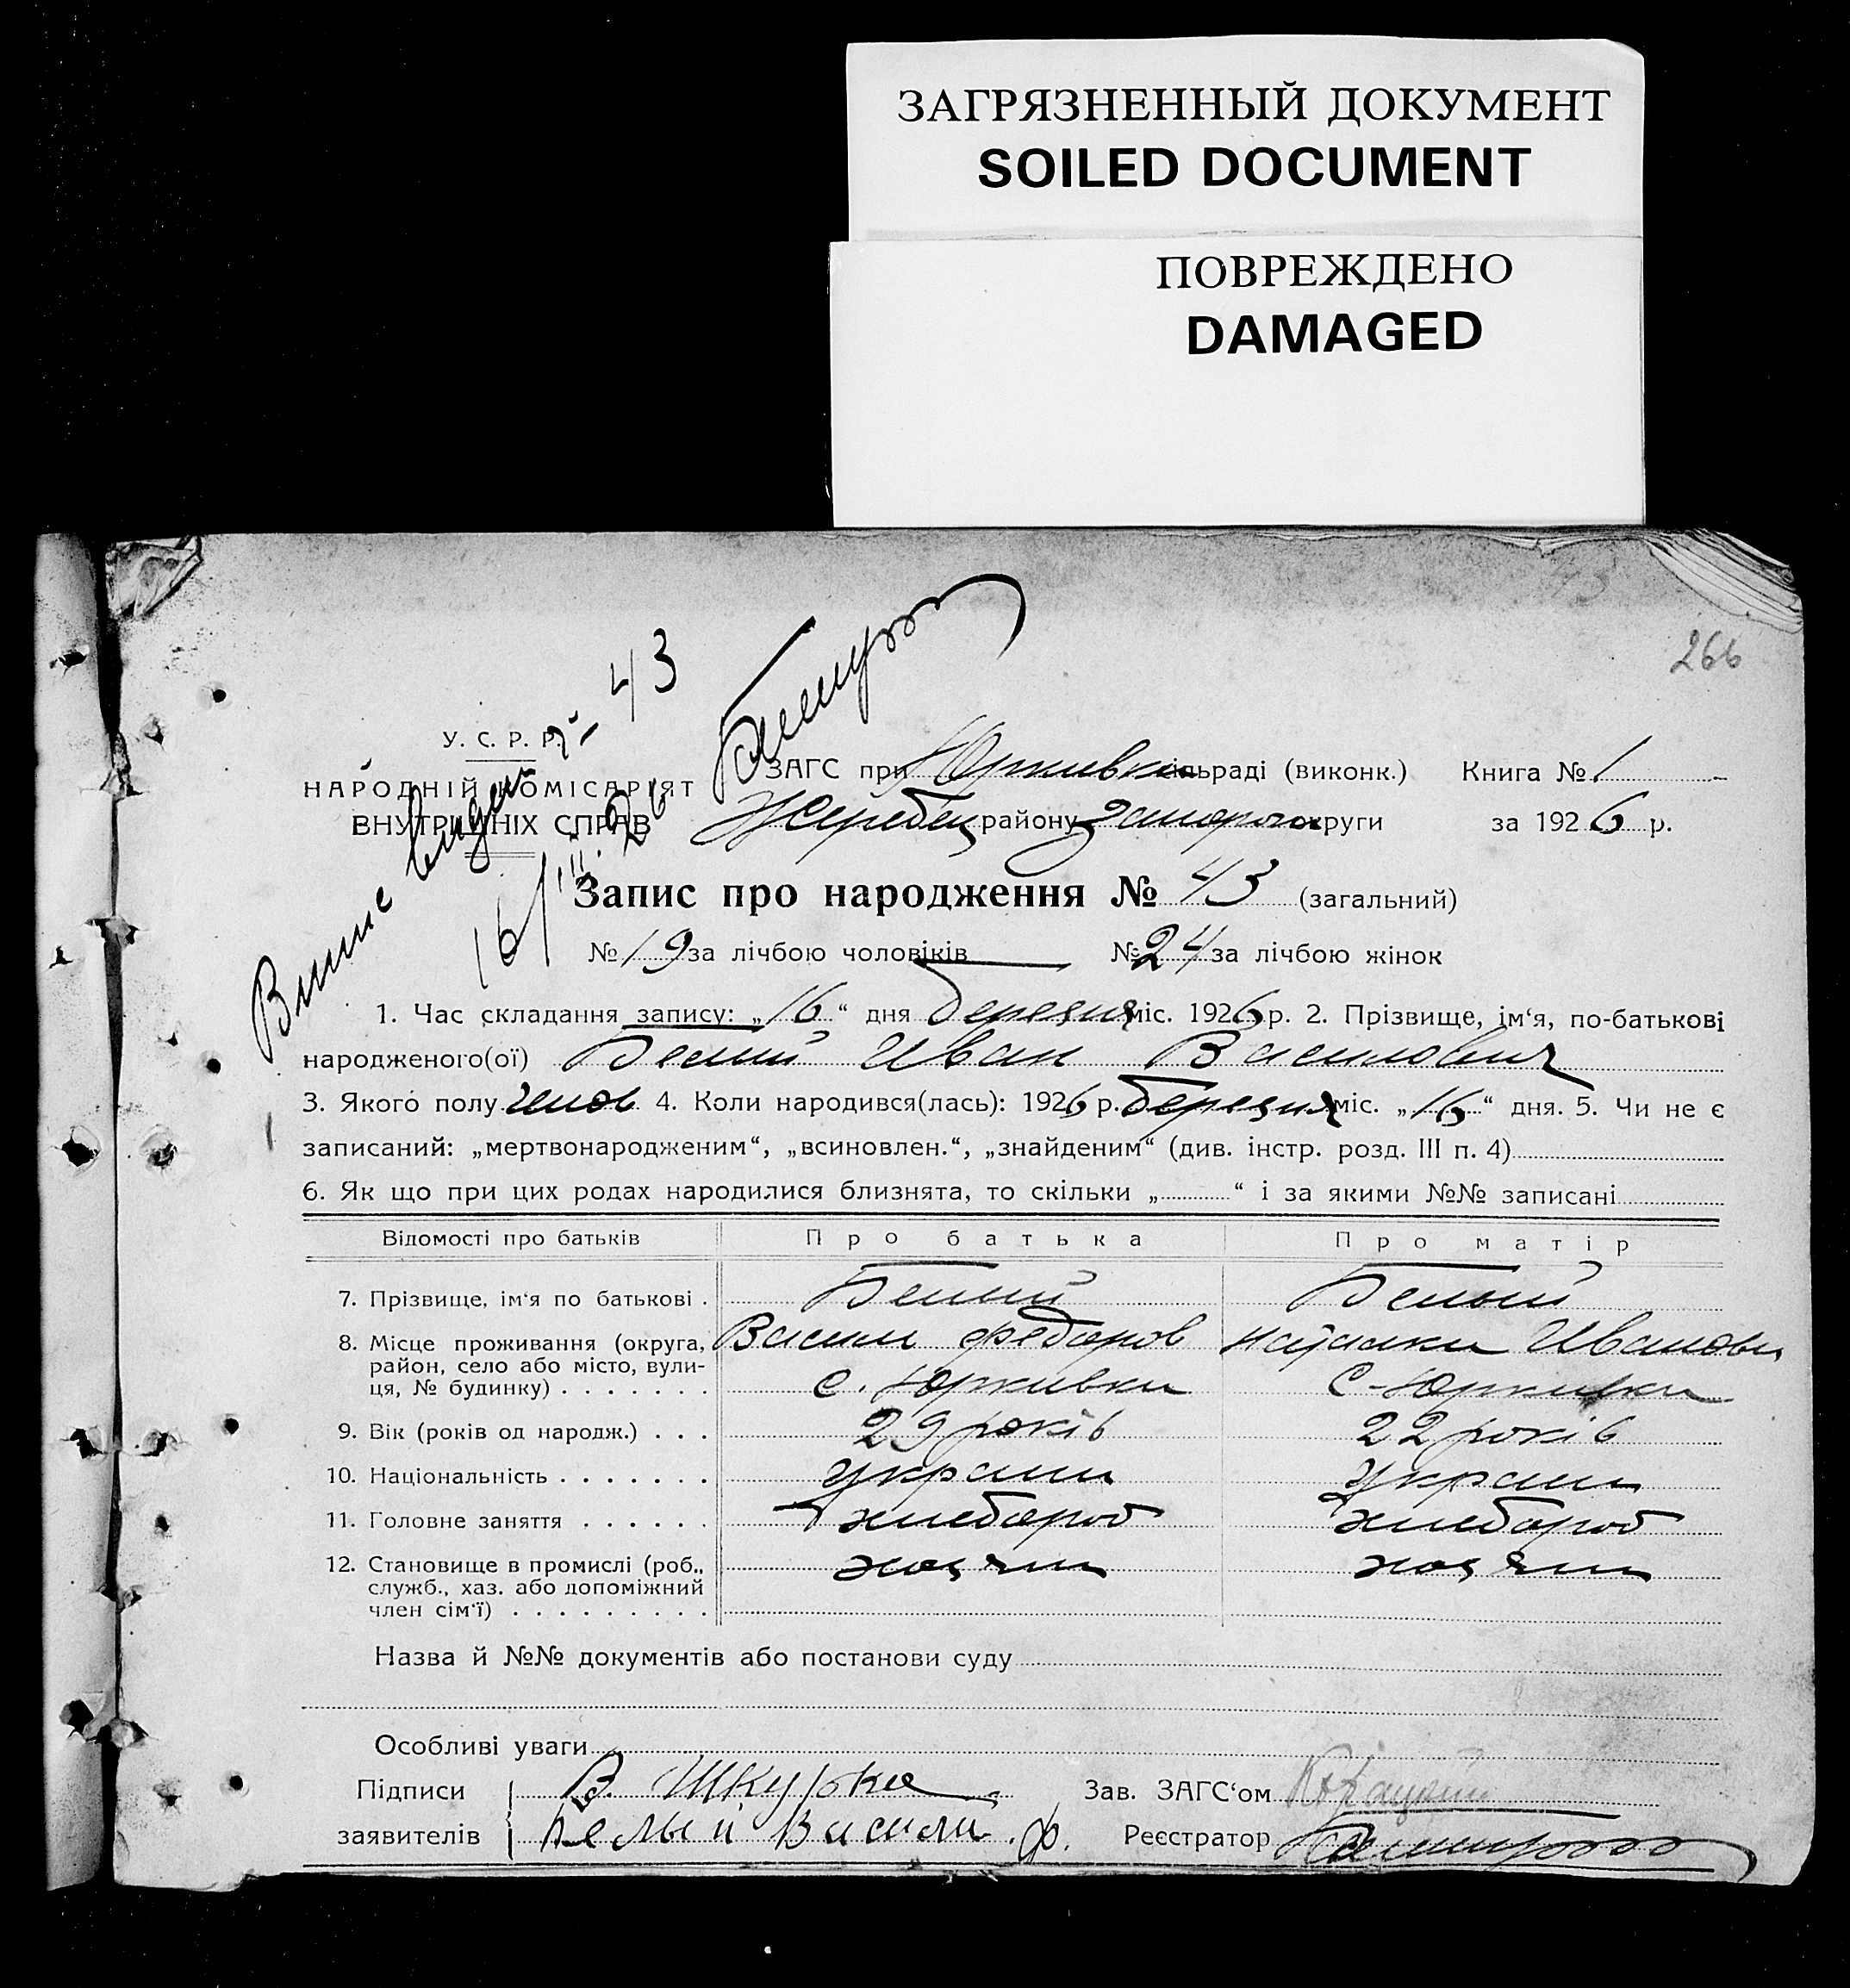 ЗАГРЯЗНЕННЫЙ ДОКУМЕНТ
SOILED DOCUMENT
ПОВРЕЖДЕНО
DAMAGED
266
43
У. С. Р. Р.
НАРОДНІЙ КОМІСАРІЯТ
ВНУТРІШНІХ СПРАВ
16/III 26
ЗАГС при Юркивка сільраді (виконк.) Книга № 1
Жеребец району Запорож округи за 1926 р.
Запис про народження № 43 (загальний)
№ 19 за лічбою чоловіків № 24 за лічбою жінок
1. Час складання запису: „16“ дня березня міс. 1926 р. 2. Прізвище, ім‘я, по-батькові
народженого(ої) Белий Иван Василович
3. Якого полу чолов 4. Коли народився(лась): 1926 р. березня міс. „16“ дня. 5. Чи не є
записаний: „мертвонародженим“, „всиновлен.“, „знайденим“ (див. інстр. розд. III п. 4)
6. Як що при цих родах народилися близнята, то скільки „ “ і за якими №№ записані
Відомості про батьків Про батька Про матір
7. Прізвище, ім‘я по батькові . Белий Белый
8. Місце проживання (округа, Васили Федоров Наталка Иванова
район, село або місто, вули-
ця, № будинку) . . . . . . . с. Юркивка с-Юркивка
9. Вік (років од народж.) . . . 29 років 22 років
10. Національність . . . . . . . україн україн
11. Головне заняття . . . . . . хлебороб хлебороб
12. Становище в промислі (роб., хозяин хозяин
служб., хаз. або допоміжний
член сім‘ї) . . . . . . . . .
Назва й №№ документів або постанови суду
Особливі уваги
Підписи В. Шкурка Зав. ЗАГС‘ом
заявителів Белый Васили. Ф. Реєстратор